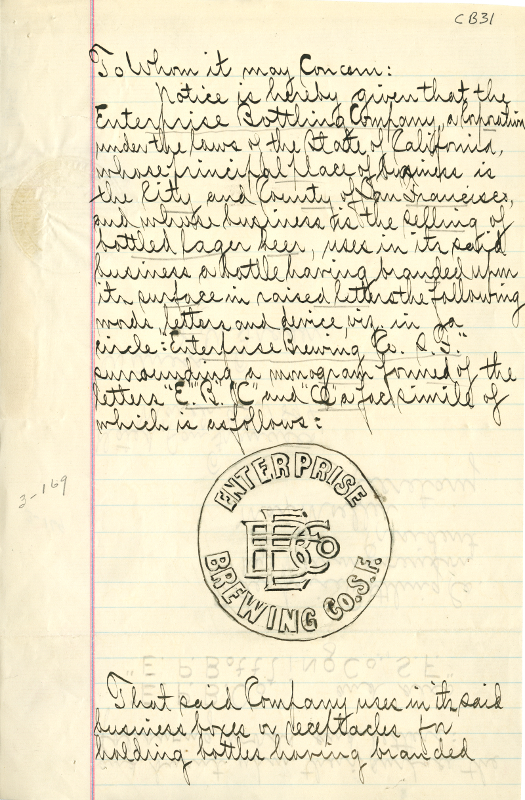 CB31
To Whom it may Concern:
Notice is hereby given that the
Enterprise Bottling Company, a Corporation
under the laws of the State of California,
whose principal place of business is
the City and County of San Francisco,
and whose business is the selling of
bottled lager beer, uses in its said
business a bottle having branded upon
its surface in raised letters the following
words, letters and device, viz, in a
circle: "Enterprise Brewing Co. S.F."
surrounding a monogram formed of the
letters "E." "B." "C" and "o" a fac simile of
which is as follows:
ENTERPRISE
EBCo
BREWING CO. S.F.
3-169
That said Company uses in its said
business boxes or receptacles for
holding bottles having branded